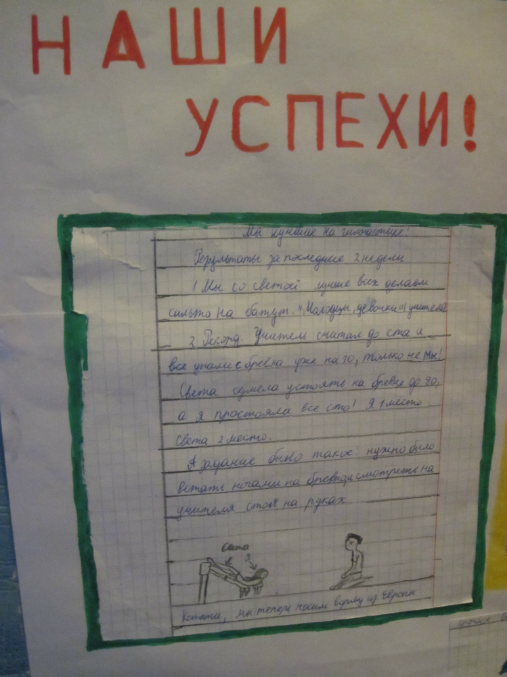 НАШИ
УСПЕХИ!
Мы лучшие на гимнастике!
Результаты за последние 2 недели
1 Мы со светой лучше всех делаем
сальто на батут. "Молодцы, девочки" учитель
2. Рекорд. Учитель считал до ста и
все упали с бревна уже на 10, только не мы!
Света сумела устоять на бревне до 90,
а я простояла все сто! Я 1 место
Света 2 место.
А задание было такое нужно было
встать ногами на бревно и смотреть на
учителя стоя на руках.
Света
Кстати, мы теперь носим форму из Европы